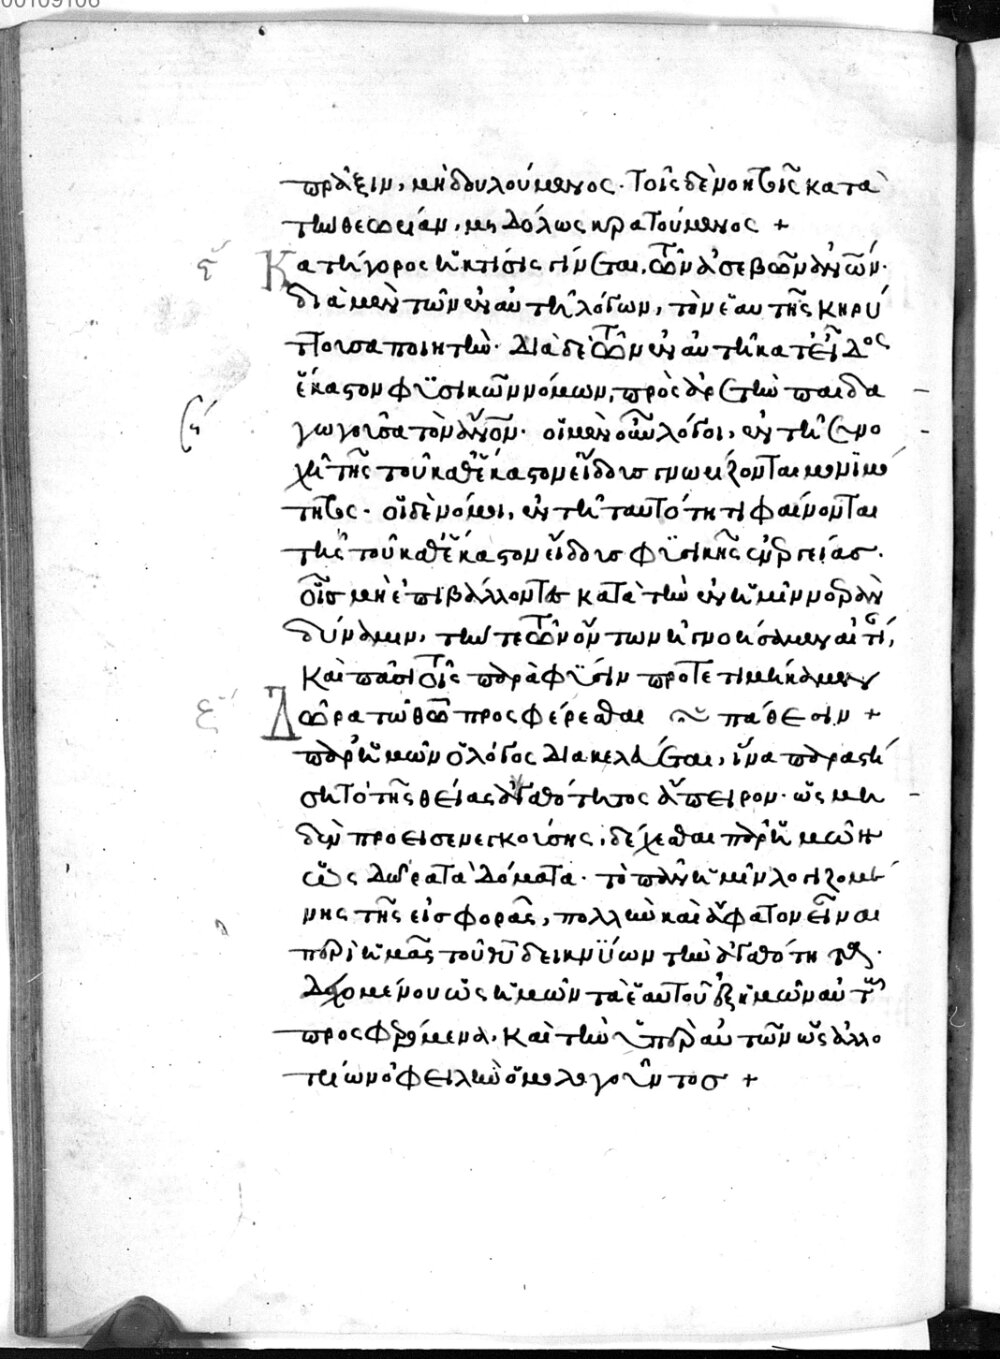 00109106
πρᾶξιν, μὴ δουλούμενος· τοῖς δὲ νοητοῖς κατὰ
τὴν θεωρίαν, μὴ δόλως κρατούμενος +
Κατήγορος ἡ κτίσις γίνεται, τῶν ἀσεβῶν ἀνων·
διὰ μὲν τῶν ἐν αὐτῆ λόγων, τὸν ἑαυτῆς κηρύ
ττουσα ποιητήν· διὰ δὲ τῶν ἐν αὐτῆ κατ εἶδος
ἕκαστον φυσικῶν νόμων, πρὸς ἀρετὴν παιδα
γωγοῦσα τὸν ἄνον· οἱ μὲν οὖν λόγοι, ἐν τῆ συνο
χῆ τῆς τοῦ καθ ἕκαστον εἴδους γνωρίζονται μονιμό
τητος· οἱ δὲ νόμοι, ἐν τῆ ταυτότητι φαίνονται
τῆς τοῦ καθ ἕκαστον εἴδους φυσικῆς ἐνεργείας·
οἷς μὴ ἐπιβάλλοντες κατὰ τὴν ἐν ἡμῖν νοερὰν
δύναμιν, τήν τε τῶν ὄντων ἠγνοήσαμεν αἰτίαν,
καὶ πᾶσι τοῖς παρὰ φύσιν προτετιμήκαμεν
Δῶρα τῶ θω προσφέρεσθαι πάθεσιν +
παρ ἡμῶν ὁ λόγος διακελεύεται, ἵνα παραστή
ση τὸ τῆς θείας ἀγαθότητος ἄπειρον· ὡς μη
δὲν προεισενεγκούσης, δέχεσθαι παρ ἡμῶν
ὡς δῶρα τὰ δόματα· τὸ πᾶν ἡμῖν λογιζομέ
νης τῆς εἰσφορᾶς, πολλὴν καὶ ἄφατον εἶναι
περὶ ἡμᾶς τοῦ θυ δεικνύων τὴν ἀγαθότητα·
δεχομένου ὡς ἡμῶν τὰ ἑαυτοῦ ἐξ ἡμῶν αὐτῶ
προσφερόμενα, καὶ τὴν ὑπὲρ αὐτῶν ὡς ἀλλο
τρίων ὀφειλὴν ὁμολογοῦντος +